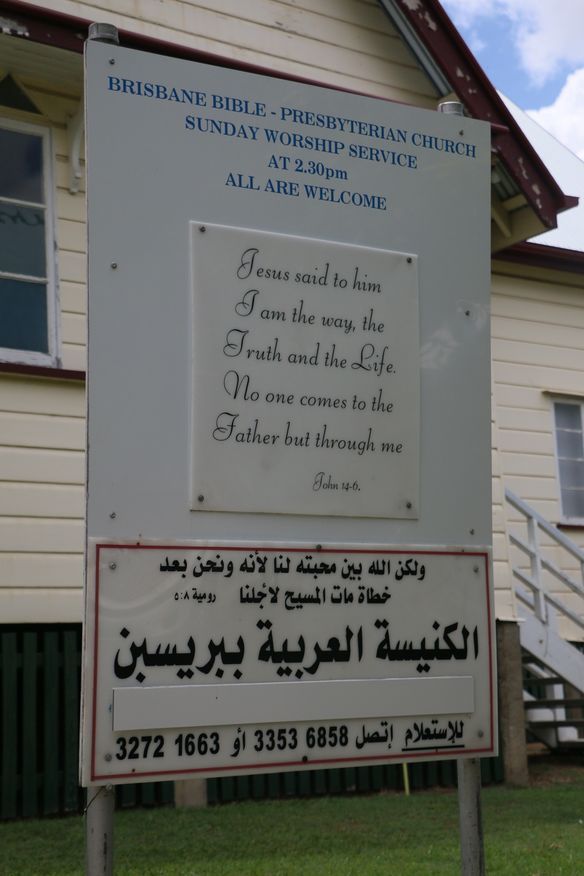 BRISBANE BIBLE - PRESBYTERIAN CHURCH
SUNDAY WORSHIP SERVICE
AT 2.30pm
ALL ARE WELCOME
Jesus said to him
I am the way, the
Truth and the Life.
No one comes to the
Father but through me
John 14-6.
ولكن الله بين محبته لنا لأنه ونحن بعد
خطاة مات المسيح لأجلنا رومية ٥:٨
الكنيسة العربية ببريسبن
للإستعلام إتصل 3353 6858 أو 3272 1663